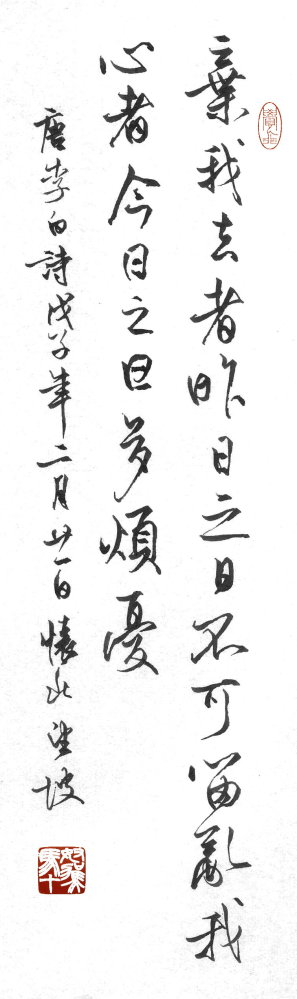 棄我去者昨日之日不可留亂我
心者今日之日多煩憂
唐李白詩戊子年二月廿一日懷此望坡